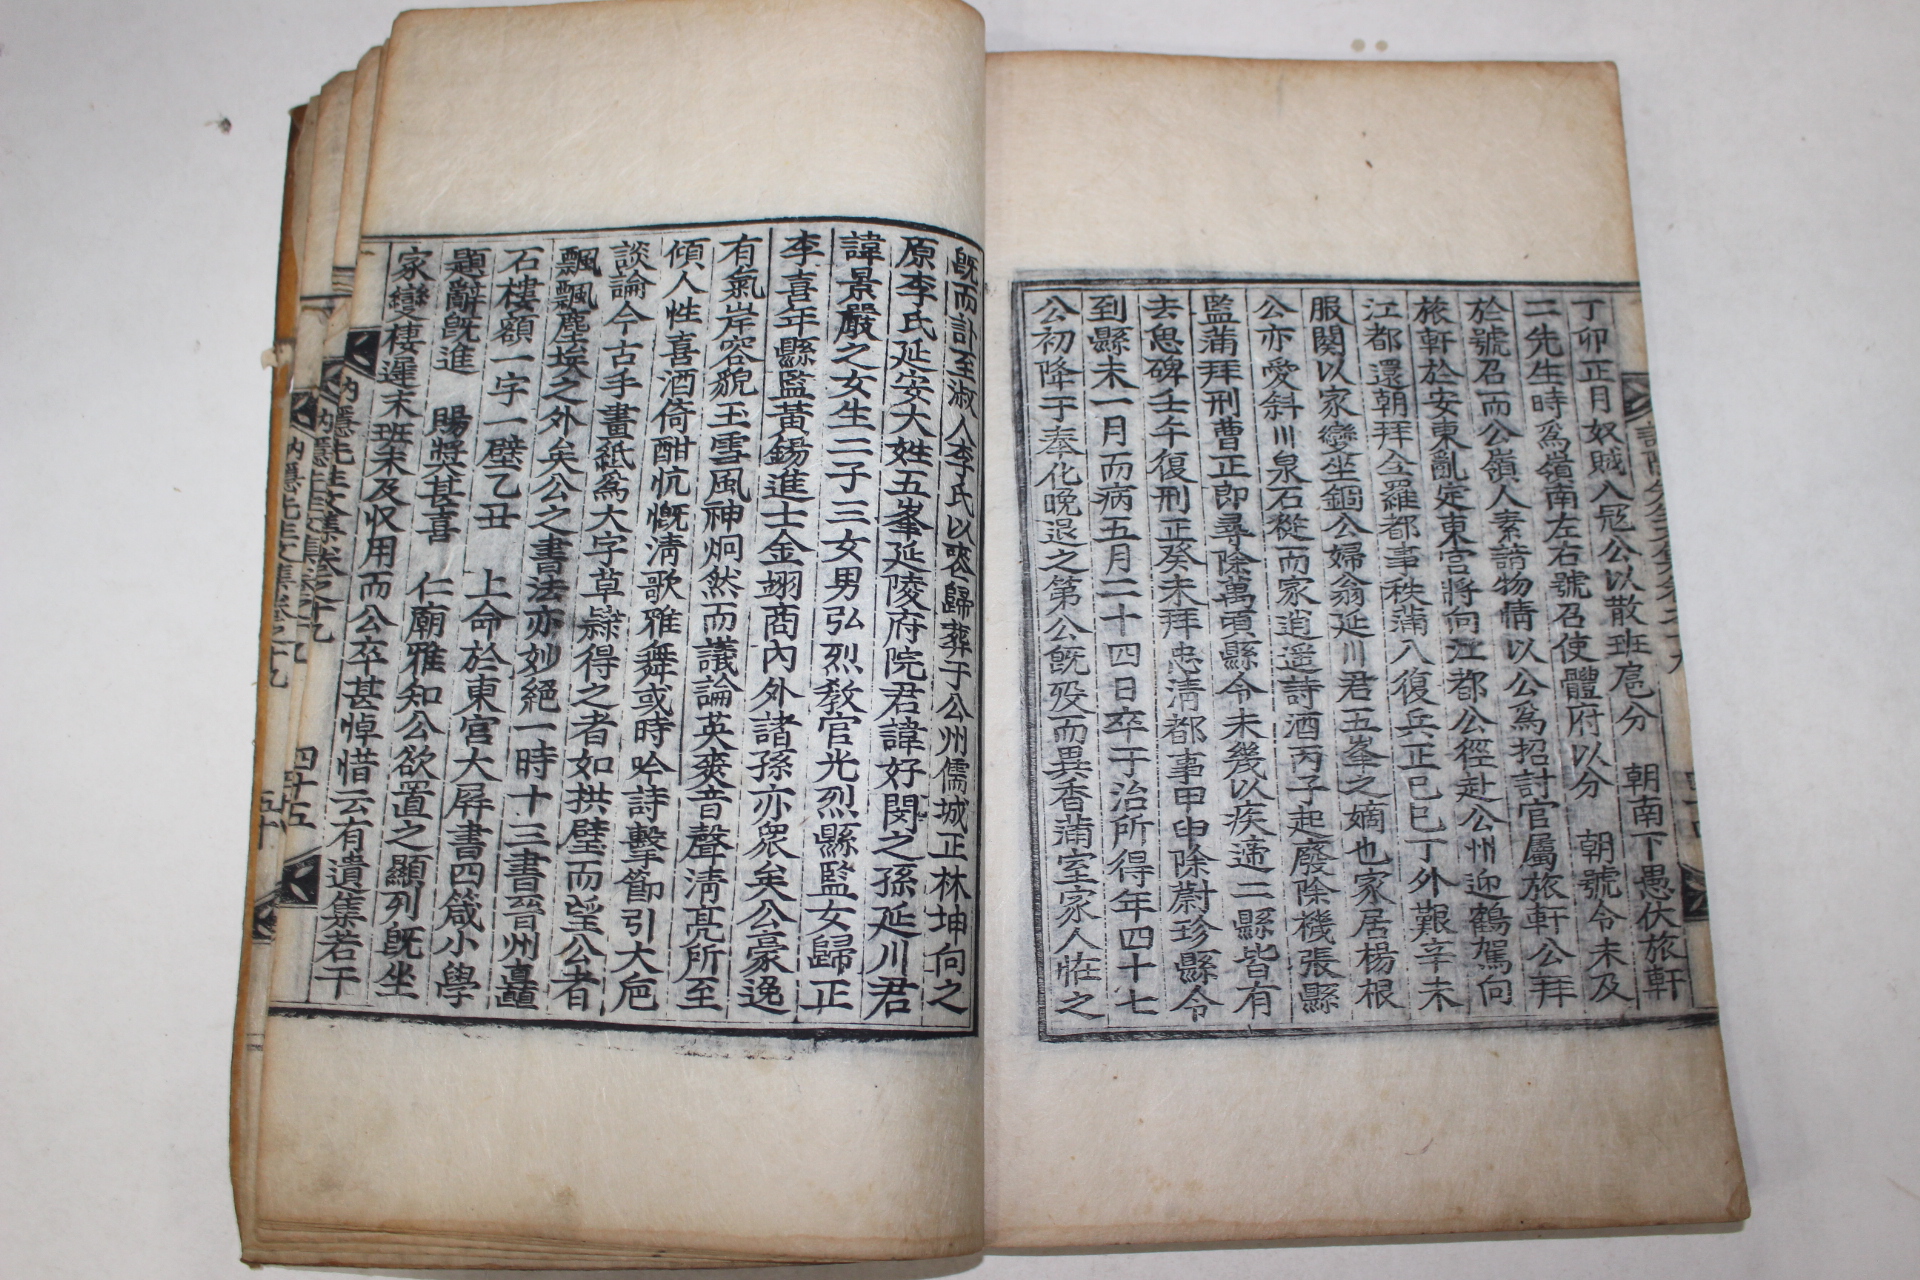 丁卯正月奴賊入冦公以散班扈分 朝南下愚伏旅軒
二先生時爲嶺南左右號召使體府以分 朝號令未及
於號召而公嶺人素諳物情以公爲招討官屬旅軒公拜
旅軒於安東亂定東宮將向江都公徑赴公州迎鶴駕向
江都還朝拜全羅都事秩滿入復兵正己巳丁外艱辛未
服闋以家變坐錮公婦翁延川君五峯之嫡也家居楊根
公亦愛斜川泉石從而家逍遥詩酒丙子起廢除機張縣
監蒲拜刑曹正郎尋除萬頃縣令未幾以疾遞二縣皆有
去思碑壬午復刑正癸未拜忠清都事甲申除蔚珍縣令
到縣未一月而病五月二十四日卒于治所得年四十七
公初降于奉化晩退之第公旣歿而異香蒲室家人莊之
旣而訃至淑人李氏以喪歸葬于公州儒城正林坤向之
原李氏延安大姓五峯延陵府院君諱好閔之孫延川君
諱景嚴之女生二子三女男弘烈敎官光烈縣監女歸正
李喜年縣監黃鍚進士金翊商內外諸孫亦衆矣公豪逸
有氣岸容貌玉雪風神炯然而議論英爽音聲淸亮所至
傾人性喜酒倚酣忼慨淸歌雅舞或時吟詩擊節引大巵
談論今古手畫紙爲大字草隷得之者如拱璧而望公者
飄飄塵埃之外矣公之書法亦妙絶一時十三書晉州矗
石樓額一字一壁乙丑 上命於東宮大屛書四箴小學
題辭旣進 賜奬甚喜 仁廟雅知公欲置之顯列旣坐
家變棲遲末班未及収用而公卒甚悼惜云有遺集若干
訥隱先生文集卷之十九
四十五
訥隱先生文集卷之十九
訥隱先生文集卷之十九
五十